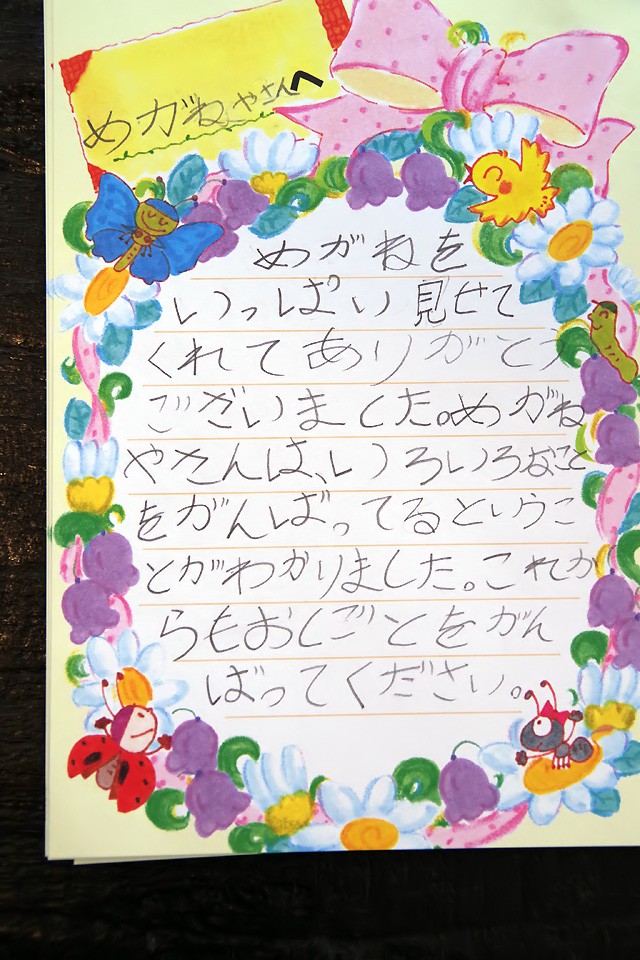 めがねやさんへ
めがねを
いっぱい見せて
くれてありがとう
ございました。めがね
やさんは、いろいろなこと
をがんばってるというこ
とがわかりました。これか
らもおしごとをがん
ばってください。